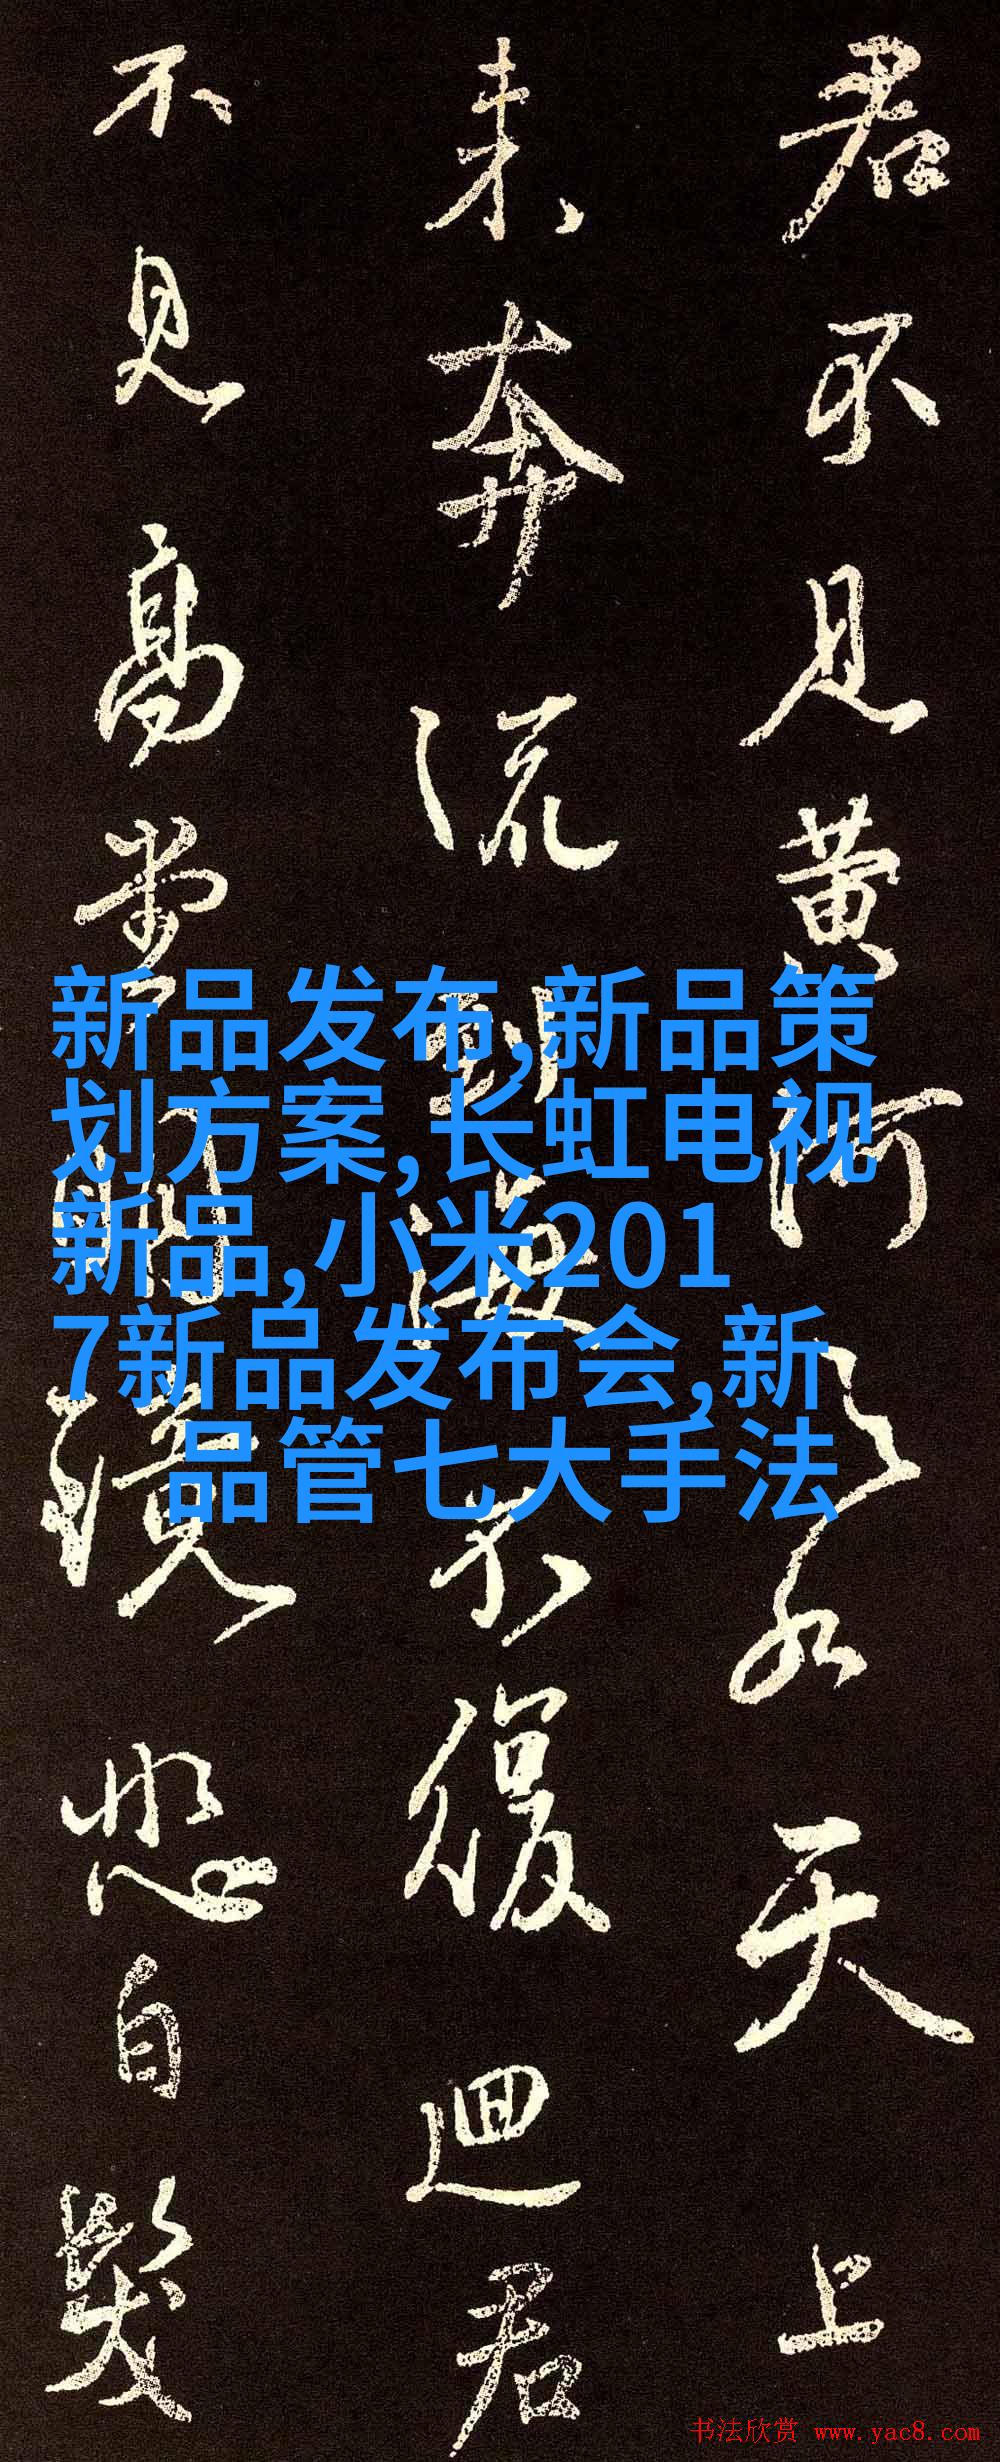 君不見黄河之水天上
来奔流到海不復迴君
不見高堂明鏡悲白髮
新品发布,新品策
划方案,长虹电视
新品,小米201
7新品发布会,新
品管七大手法
书法欣赏 www.yac8.com